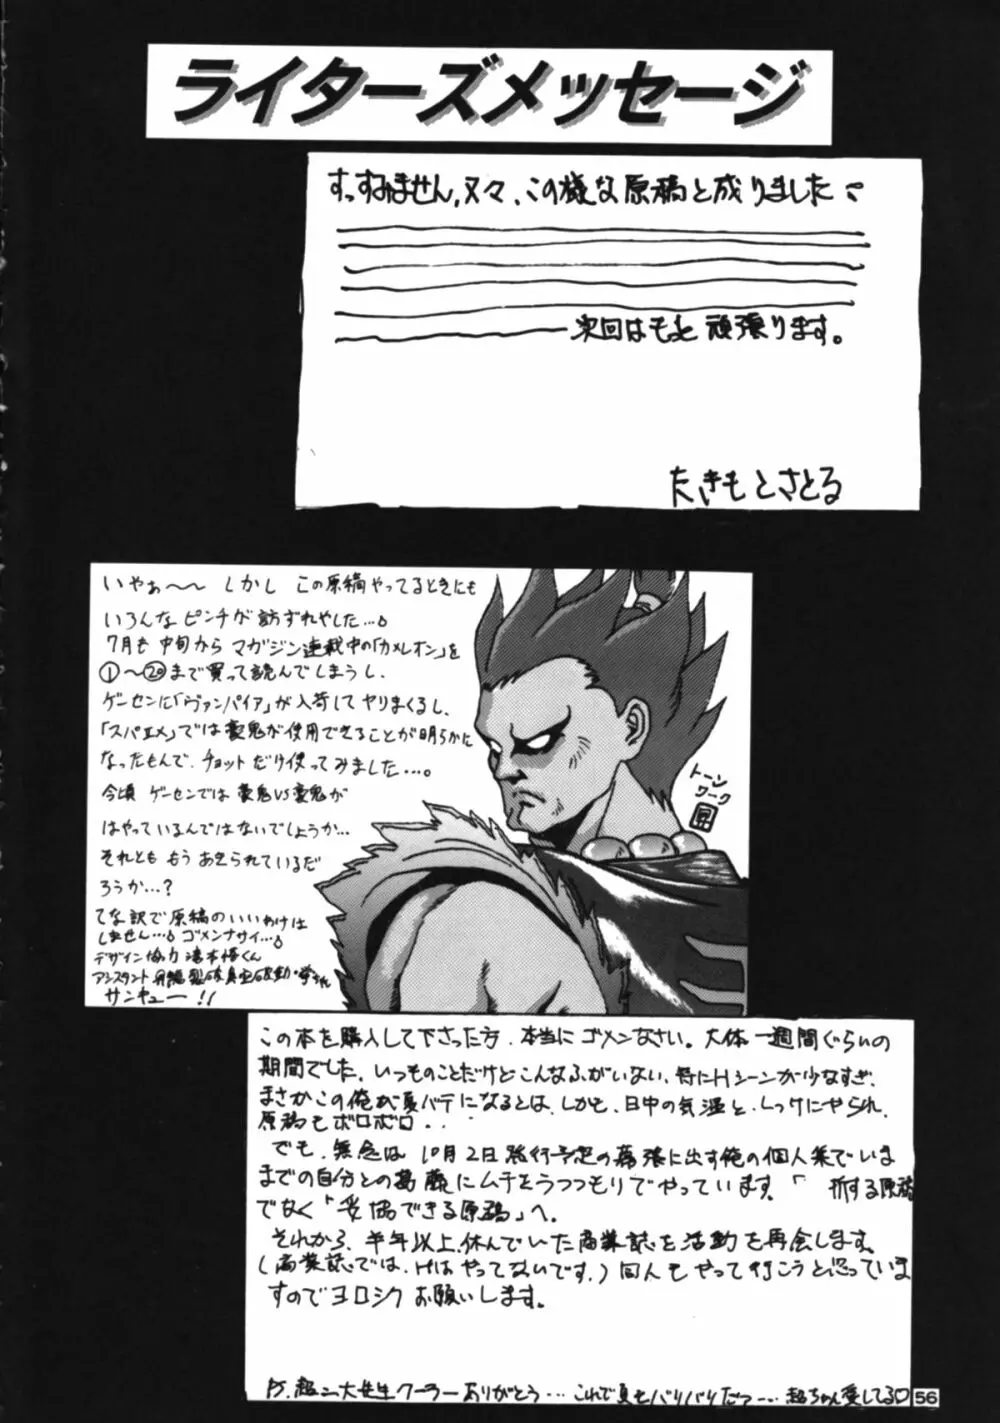 ライターズメッセージ
すっすみません,又々、この様な原稿と成りました
次回はもっと頑張ります。
たきもとさとる
いやぁ〜〜 しかし この原稿やってるときにも
いろんなピンチが訪ずれやした…。
7月も中旬からマガジン連載中の「カメレオン」を
①〜⑳まで買って読んでしまうし、
ゲーセンに「ヴァンパイア」が入荷してヤリまくるし、
「スパエメ」では豪鬼が使用できることが明らかに
なったもんで、チョットだけ使ってみました…。
今頃 ゲーセンでは 豪鬼VS豪鬼が
はやっているんではないでしょうか…
それとも もう あきられているだ
ろうか…?
てな訳で原稿のいいわけは
しません…。ゴメンナサイ…。
デザイン協力 滝本悟くん
アシスタント
サンキュー!!
トーン
ワーク
昇
この本を購入して下さった方、本当にゴメンなさい。大体一週間ぐらいの
期間でした、いつものことだけどこんなふがいない、特にHシーンが少なすぎ、
まさかこの俺が夏バテになるとは、しかも、日中の気温と、しっけにやられ、
原稿もボロボロ・・
でも、無念は10月2日発行予定の幕張に出す俺の個人集でいま
までの自分との葛藤にムチをうつつもりでやっています。「 折する原稿
でなく「妥協できる原稿」へ。
それから、半年以上、休んでいた商業誌を活動を再会します。
(商業誌では、Hはやってないです。)同人もやって行こうと思っていま
すのでヨロシク お願いします。
P.S.超二大先生クーラーありがとう…これで夏もバリバリだっ…超ちゃん愛してる♡
56